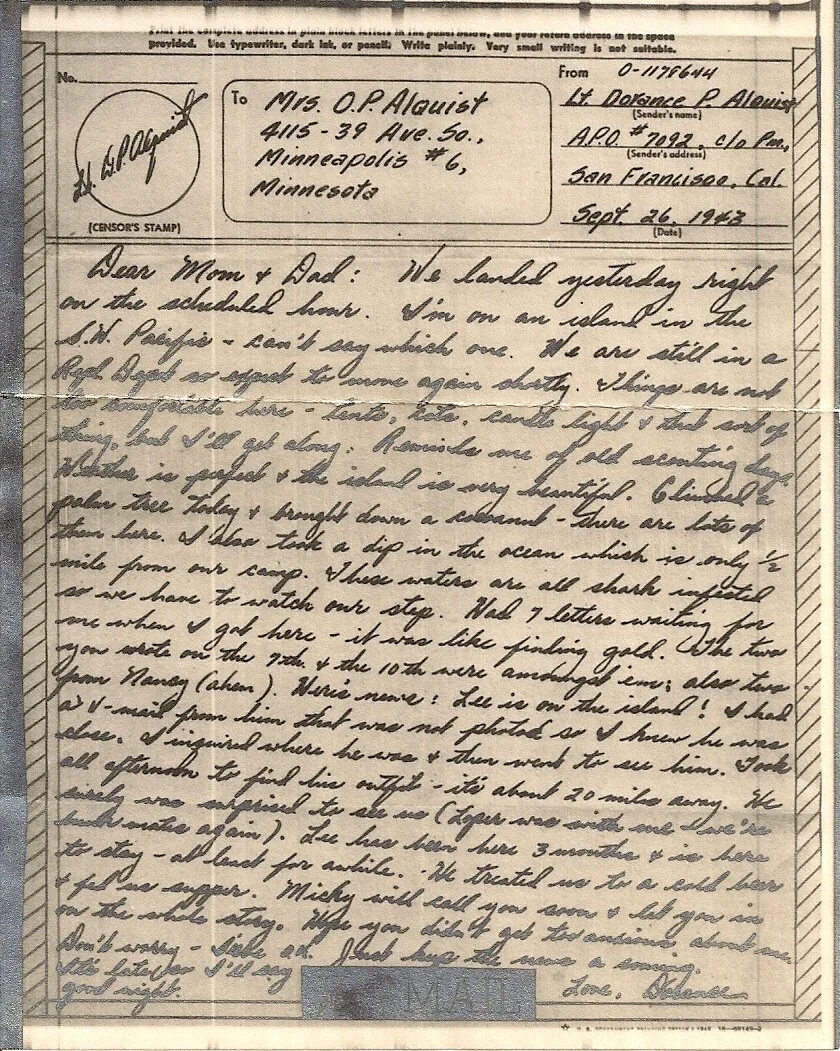 Print the complete address in plain block letters in the panel below, and your return address in the space
provided. Use typewriter, dark ink, or pencil. Write plainly. Very small writing is not suitable.
No.
From O-1178644
To Mrs. O.P. Alquist
4115-39 Ave. So.,
Minneapolis #6,
Minnesota
Lt. Dorance P. Alquist
(Sender's name)
A.P.O. #7092, c/o Pm.,
(Sender's address)
San Francisco, Cal.
Sept. 26, 1943
(Date)
Lt. D.P. Alquist
(CENSOR'S STAMP)
Dear Mom & Dad: We landed yesterday right
on the scheduled hour. I'm on an island in the
S.W. Pacific - can't say which one. We are still in a
Repl. Depot so expect to move again shortly. Things are not
too comfortable here - tents, cots, candle light & that sort of
thing, but I'll get along. Reminds me of old scouting days.
Weather is perfect & the island is very beautiful. Climbed a
palm tree today & brought down a cocoanut - there are lots of
them here. I also took a dip in the ocean which is only 1/2
mile from our camp. These waters are all shark infested
so we have to watch our step. Had 7 letters waiting for
me when I got here - it was like finding gold. The two
you wrote on the 7th & the 10th were amongst 'em; also two
from Nancy (ahem). Here's news: Lee is on the island! I had
a V-mail from him that was not photoed so I knew he was
close. I inquired where he was & then went to see him. Took
all afternoon to find his outfit - it's about 20 miles away. He
surely was surprised to see us (Loper was with me - we're
bunk mates again). Lee has been here 3 months & is here
to stay - at least for awhile. He treated us to a cold beer
& fed us supper. Micky will call you soon & let you in
on the whole story. Hope you didn't get too anxious about me.
Don't worry - I'll be O.K. Just keep the news a coming.
It's late, so I'll say
good night.
Love, Dorance
MAIL
U. S. GOVERNMENT PRINTING OFFICE